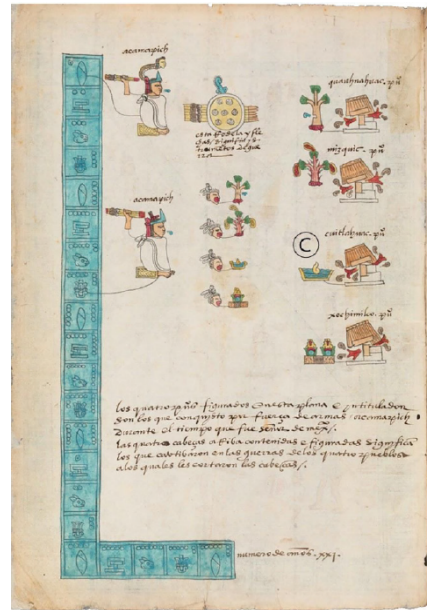 acamapich
quauhnahuac. puº
mizquic. puº
esta Rodela y fle
chas significan yns
trumentos de gue
rra
acamapich
C
cuitlahuac. puº
xochimilco. puº
los quatro puºs figurados en esta plana e yntitulados
son los que conquisto por fuerça de armas. acamapich
durante el tiempo que fue señor de mexº/.
las quatro cabeças a Riba contenidas e figuradas significā
los que cautibaron en las guerras de los quatro pueblos
a los quales les cortaron las cabeças/.
numero de años. xxi.